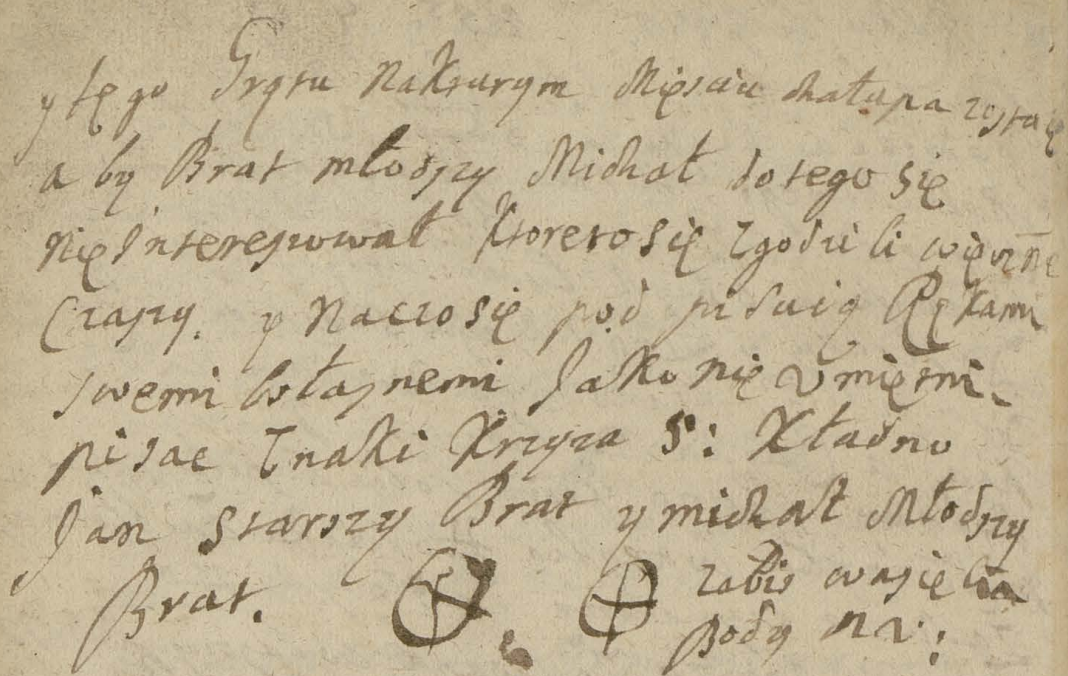 y tęgo Grętu naKturym Mięscu chałupa zostaię
a by Brat młodszy Michał do tego się
nię Interesował Ktoreto się zgodzili więcznę
Czaszy. y na czo się pod pisuią Rękami
swemi własnemi Jako nię Vmiętni
pisac Znaki Krzyza S: Kładno
Jan starszy Brat y michał Młodszy
Brat.